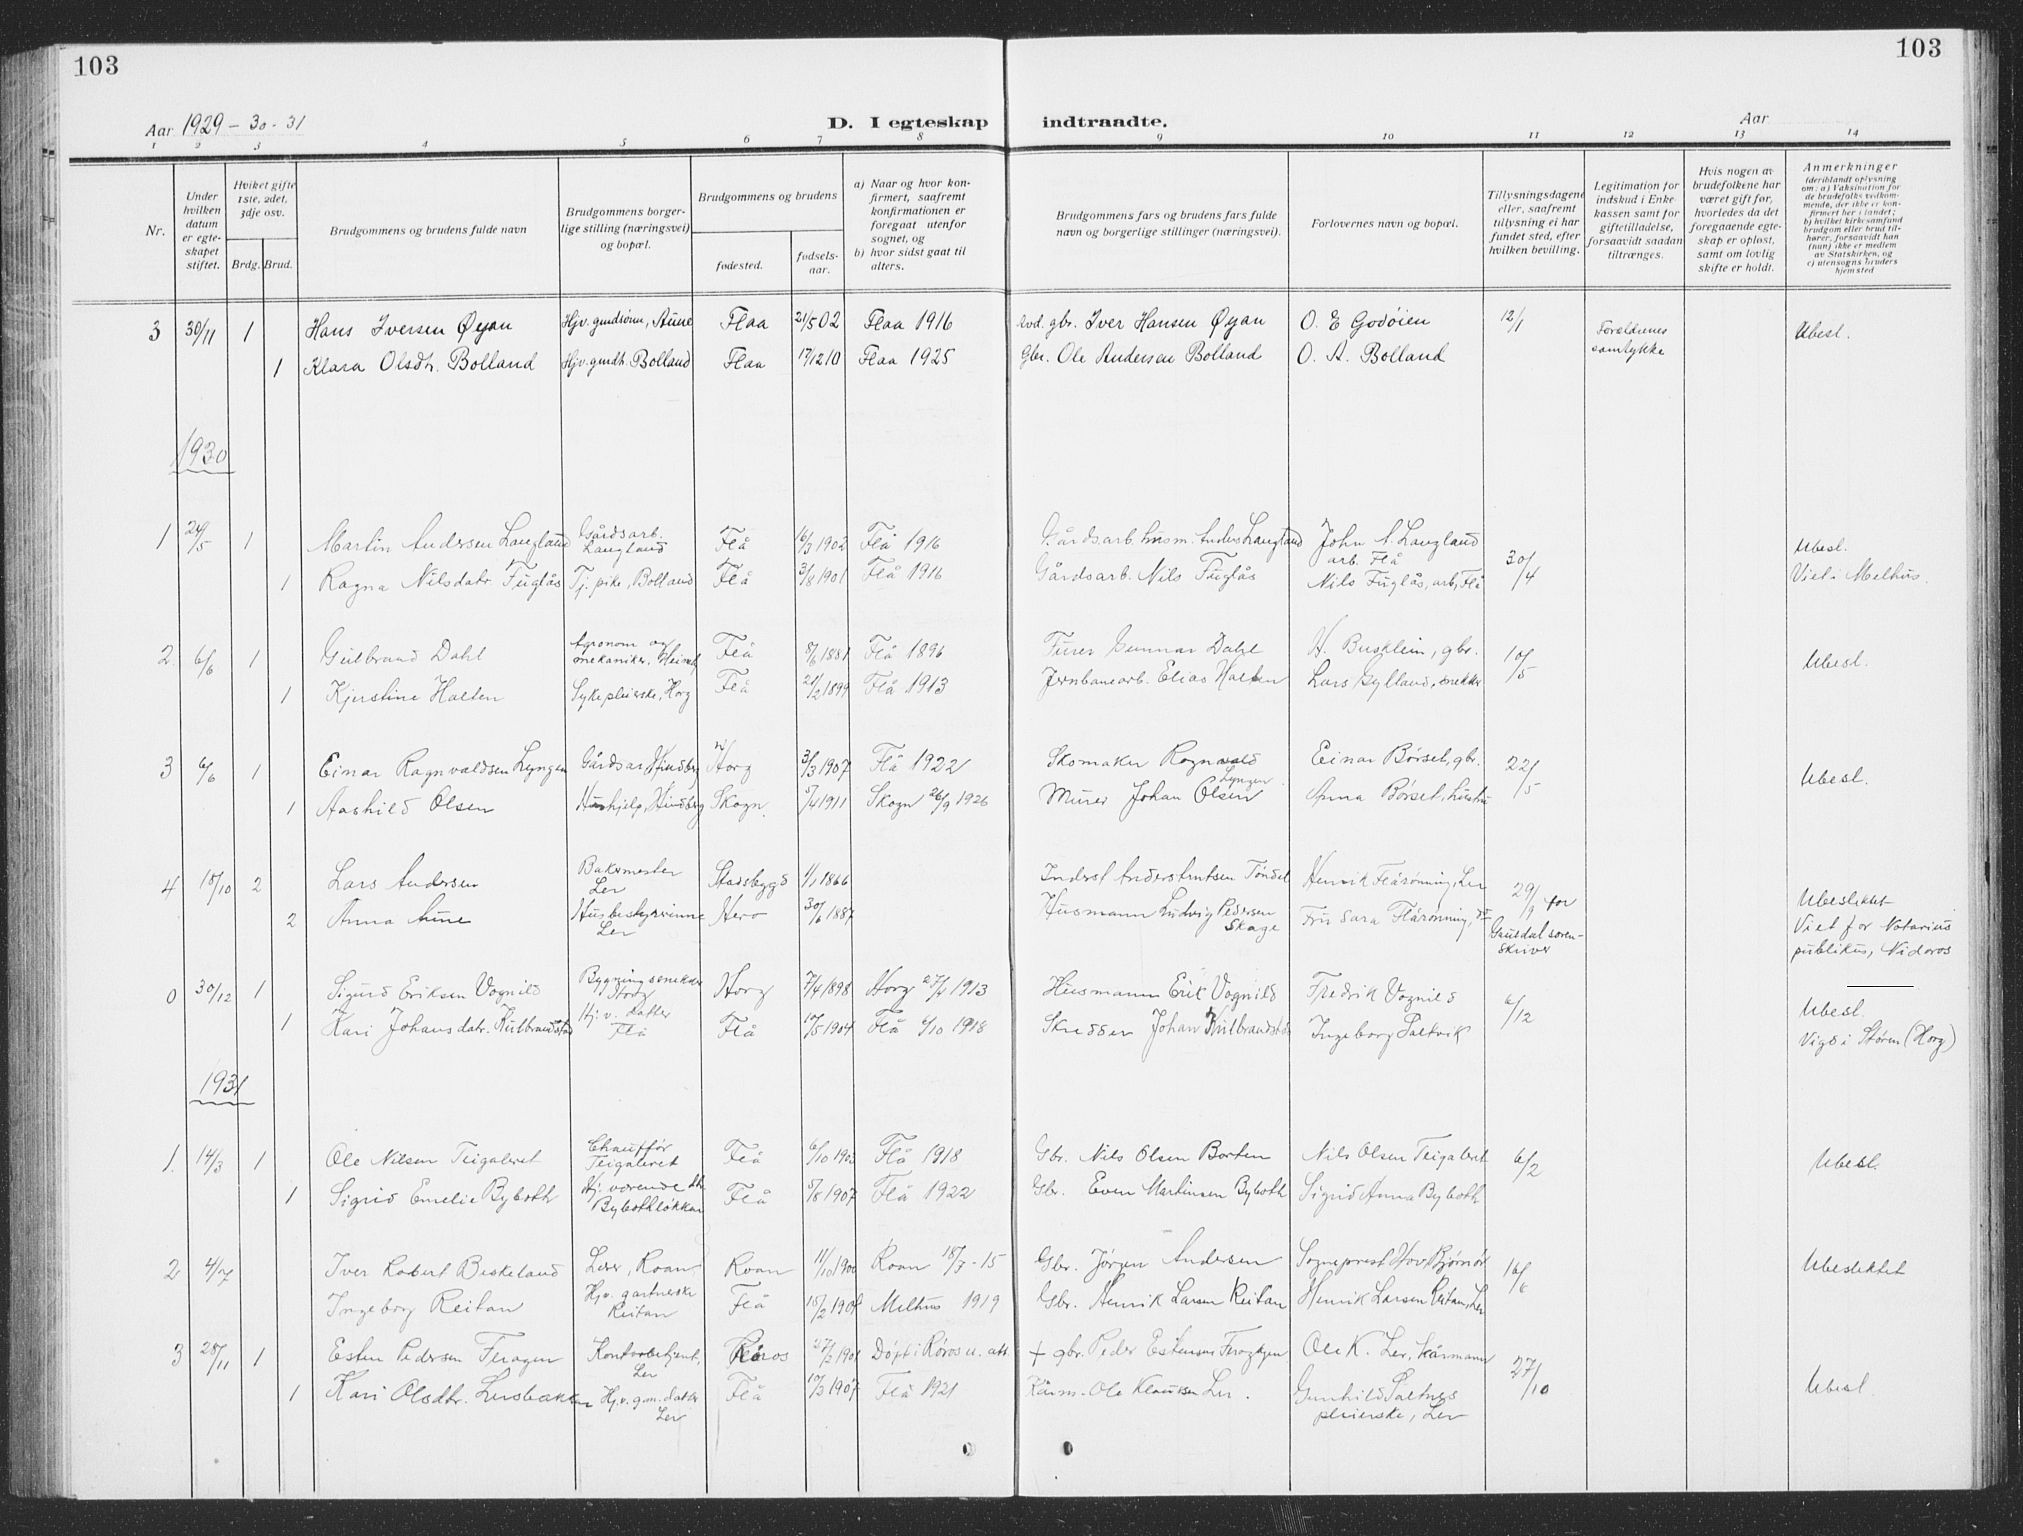 103
103
Aar 1929 - 30 - 31
D. I egteskap indtraadte.
Aar
1 2 3 4 5 6 7 8 9 10 11 12 13 14
Nr.
Under hvilken datum er egteskapet stiftet.
Hvilket gifte 1ste, 2det, 3dje osv.
Brdg. Brud.
Brudgommens og brudens fulde navn
Brudgommens borgerlige stilling (næringsvei) og bopæl.
Brudgommens og brudens
fødested.
fødselsaar.
a) Naar og hvor konfirmert, saafremt konfirmationen er foregaat utenfor sognet, og
b) hvor sidst gaat til alters.
Brudgommens fars og brudens fars fulde navn og borgerlige stillinger (næringsvei).
Forlovernes navn og bopæl.
Tillysningsdagene eller, saafremt tillysning ei har fundet sted, efter hvilken bevilling.
Legitimation for indskud i Enkekassen samt for giftetilladelse, forsaavidt saadan tiltrænges.
Hvis nogen av brudefolkene har været gift før, hvorledes da det foregaaende egteskap er opløst, samt om lovlig skifte er holdt.
Anmerkninger (deriblandt oplysning om: a) Vaksination for de brudefolks vedkommende, der ikke er konfirmert her i landet; b) hvilket kirkesamfund brudgom eller brud tilhører, forsaavidt han (hun) ikke er medlem av Statskirken, og c) utensogns bruders hjemsted
3 30/11 1 Hans Iversen Øyan Hjv. grndsønn, Aune Flaa 21/5 02 Flaa 1916 gbr. Iver Hansen Øyan O. E Godøien 12/1 Foreldrenes samtykke Ubesl.
1 Klara Olsdtr. Bolland Hjv. gmdt. Bolland Flaa 17/12 10 Flaa 1925 Gbr. Ole Andersen Bolland O. A. Bolland
1930
1 24/5 1 Martin Andersen Langland Gårdsarb. Langland Flå 16/3 1902 Flå 1916 Gårdsarb. husm. Anders Langland John A. Langland arb. Flå 30/4 Ubesl.
1 Ragna Nilsdatr. Fuglås Tj. pike, Bolland Flå 3/8 1901 Flå 1916 Gårdsarb. Nils Fuglås Nils Fuglås, arb, Flå Viet i Melhus.
2. 6/6 1 Gulbrand Dahl Agronom og mekaniker, Heimd. Flå 8/6 1881 Flå 1896 Gunnar Dahl H. Busklein, gbr. 10/5 Ubesl.
1 Kjerstine Halten Sykepleierske, Horg Flå 21/2 1899 Flå 1913 Jernbanearb. Elias Halten Lars Gylland, snekker
3 6/6 1 Einar Ragnvaldsen Lyngen Gårdsar Hindberg Horg 3/3 1907 Flå 1922 Skomaker Ragnvald Lyngen Einar Børset, gbr. 22/5 Ubesl.
1 Aashild Olsen Hushjelp, Hindberg Skogn. 5/4 1911 Skogn 26/9 1926 Murer Johan Olsen Anna Børset, hustru
4 18/10 2 Lars Andersen Bakermester Ler Stadsbygd 1/1 1866 Inderst Anders Tøndel Henrik Flårønning, Ler 29/9 for Gauldal sorenskriver Ubeslektet
2 Anna Aune Husbestyrerinne Ler 30/6 1887 Husmann Ludvig Pedersen Skage Fru Sara Flårønning, do Viet for Notarius publikus, Nidaros
0 30/12 1 Sigurd Eriksen Vognild Bygningssnekker Horg Horg 7/4 1898 Horg 27/4 1913 Husmann Erik Vognild Fredrik Vognild 6/12 Ubesl.
1 Kari Johansdatr. Kulbrandstad Hj. v. datter Flå Flå 10/5 1904 Flå 6/10 1918 Skredder Johan Kulbrandstad Ingeborg Saltvik Vigd i Støren (Horg)
1931
1. 14/3 1 Ole Nilsen Teigaleret Chauffør Teigaleret Flå 6/10 1903 Flå 1918 Gbr. Nils Olsen Borten Nils Olsen Teigaleret 6/2 Ubesl.
1 Sigrid Emelie Byboth Hj. værende dtr. Bybothløkken Flå 5/8 1907 Flå 1922 Gbr. Even Martinsen Byboth Sigrid Anna Byboth
2 4/7 Iver Robert Beskeland Lærer, Roan Roan 11/10 1900 Roan 18/7 - 15 Gbr. Jørgen Andersen Sogneprest Hov, Bjørnør 16/6 Ubeslektet
Ingeborg Reitan Hjv. gartnerske Reitan Flå 15/2 1904 Melhus 1919 Gbr. Henrik Larsen Reitan Henrik Larsen Reitan, Ler
3 28/11 1 Esten Pedersen Feragen Kontorbetjent, Ler Røros 27/2 1901 Døpt i Røros u. att. + gbr. Peder Estensen Feragen Ole K. Ler, kårmann 27/10 Ubesl.
1 Kari Olsdtr. Lersbakken Hj. v. gm. datter Ler Flå 10/3 1907 Flå 1921 Kårm. Ole Klausen Ler. Gunhild Saltnes pleierske, Ler